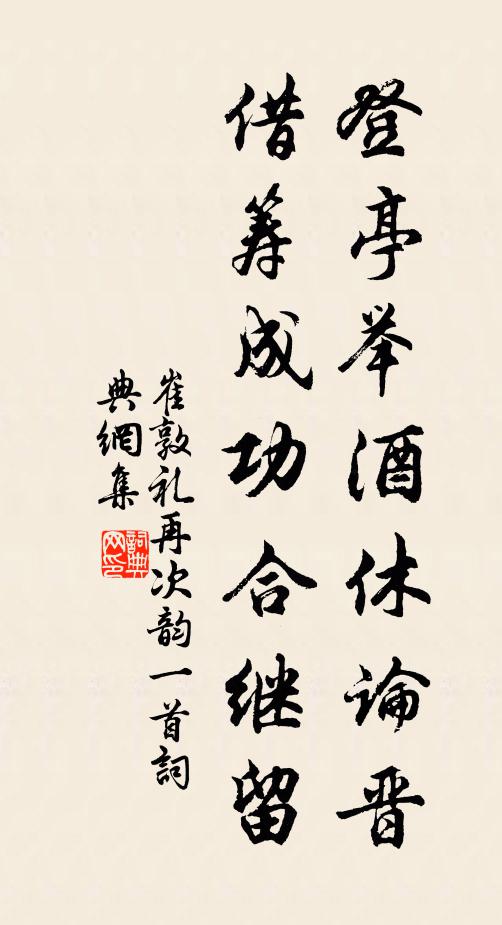 登亭举酒休論晋
借筹成功合继留
崔敦礼再次韵一首詞
典網集
詞典网印